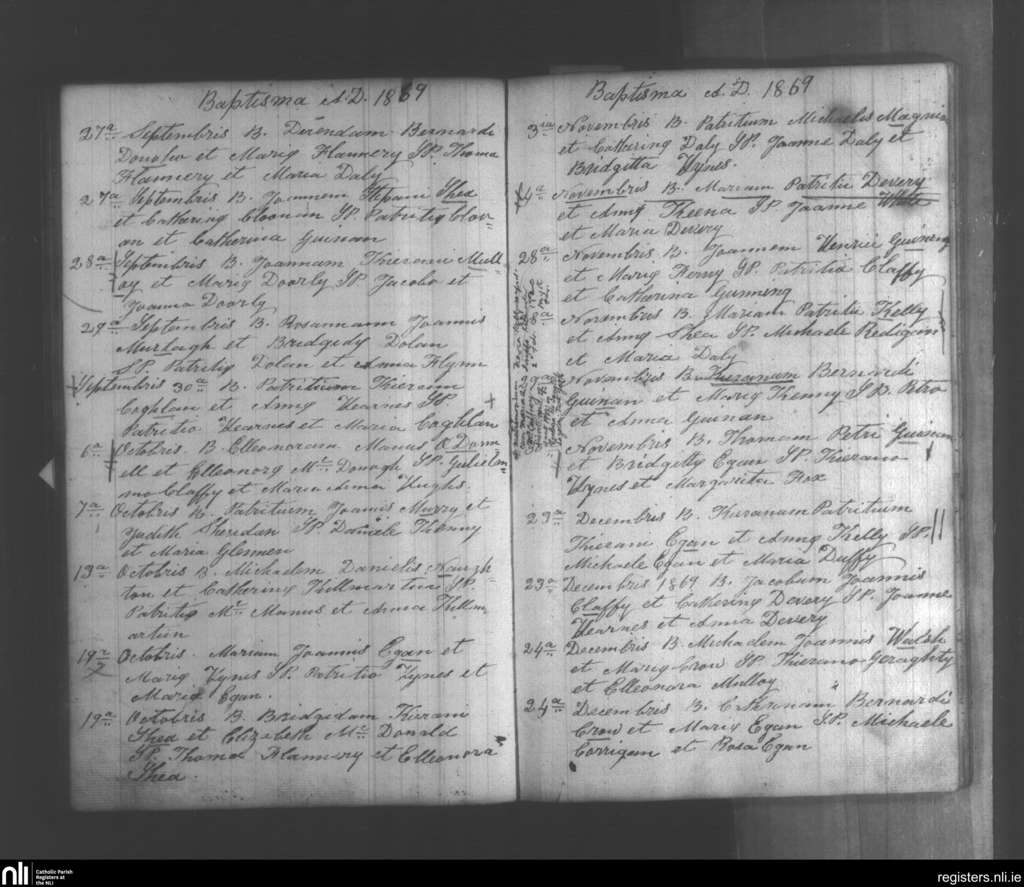 Baptisma A.D. 1869
27a Septembris B. Bernardi
Donoho et Mariq Flannery SP. Thoma
Flannery et Maria Daly
27a Septembris B. Joannem Stepani Shea
et Catharinq SP. Patritiq Cloo=
an et Catherina Guinan
28a Septembris B. Joannam Kierani Mull=
oy et Mariq Doorly SP Jacobo et
Joanna Doorly
29a Septembris B. Rosannam Joannis
Murtagh et Bridgidq Dolan
SP. Patritiq Dolan et Anna Flynn
Septembris 30a B. Patritium Kieran
Coghlan et Annq Hearnes SP.
Patritio Hearnes et Maria Coghlan
6a Octobris. B Elleonoram Manus O Donn
ell et Elleonorq Mc Donogh SP. Gulielm=
mo Claffy et Maria Anna Hughs.
7a Octobris B. Patritium Joannis Murry et
Judith Sheridan SP Daniele Kienny
et Maria Glennen
13a Octobris B. Michaelem Danielis Naugh=
ton et Catherinq Killmartin SP
Patritiq Mc Manus et Anna Killm
artin
19a Octobris. Mariam Joannis Egan et
Mariq Hynes SP. Patritio Hynes et
Mariq Egan.
19a Octobris B Bridgidam Kierani
Shea et Elizabeth Mc Donald
SP. Thoma Flannery et Elleonora
Shea.
Baptisma A.D. 1869
Novembris B. Patritium Michaelis
et Catherinq Daly SP. Joanne Daly et
Bridgitta Hynes.
4a Novembris B. Mariam Patritii Devery
et Annq Kieena SP Joanne White
et Maria Devery
28a Novembris B. Joannem Henrici Guineng
et Mariq SP. Patritio Claffy
et Catharina Guineng
Novembris B. Mariam Patritii Kelly
et Annq Shea SP. Michaele Redigan
et Maria Daly
Novembris B. Kieranum Bernardi
Guinan et Mariq Kienny SP. Petro
et Anna Guinan
Novembris B. Thomam Petri Guinan
et Bridgitty Egan SP. Kierano
Hynes et Margarita Fox
23a Decembris B. Kieranum Patritium
Kierani Egan et Annq Kelly SP.
Michaele Egan et Maria Duffy
23a Decembris 1869 B. Jacobum Joannis
Claffy et Catherinq Devery SP. Joanne
Hearnes et Anna Devery
24a Decembris B. Michaelem Joannis Walsh
et Mariq Crow SP Kierano Geraghty
et Elleonora Mulloy
24a Decembris B. Bernardi
Crow et Mariq Egan SP. Michaele
Corrigan et Rosa Egan
nli Catholic Parish
Registers at
the NLI
registers.nli.ie